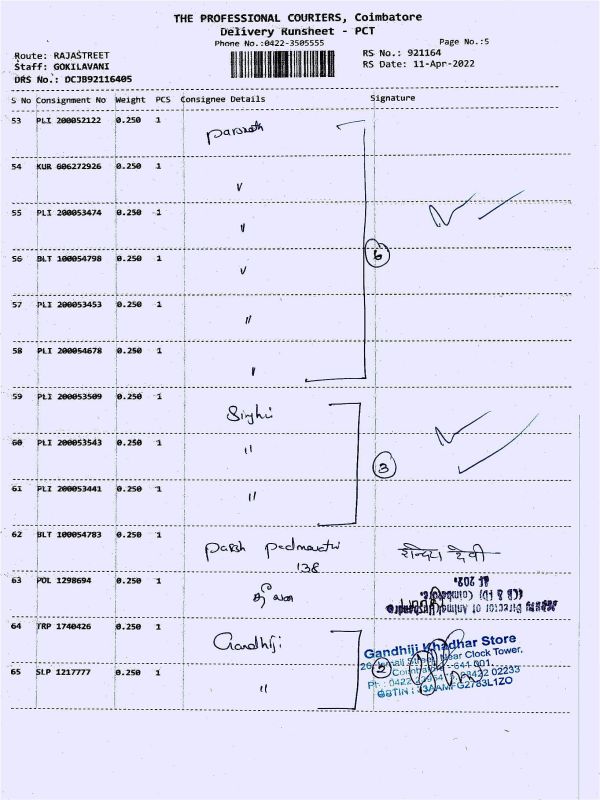 THE PROFESSIONAL COURIERS, Coimbatore
Delivery Runsheet - PCT
Phone No.:0422-3505555
Page No.:5
Route: RAJASTREET
Staff: GOKILAVANI
DRS No.: DCJB92116405
RS No.: 921164
RS Date: 11-Apr-2022
S No Consignment No Weight PCS Consignee Details Signature
53 PLI 200052122 0.250 1
54 KUR 606272926 0.250 1 "
55 PLI 200053474 0.250 1 "
56 BLT 100054798 0.250 1 "
6
57 PLI 200053453 0.250 1 "
58 PLI 200054678 0.250 1 "
59 PLI 200053509 0.250 1 Singhi
60 PLI 200053543 0.250 1 "
3
61 PLI 200053441 0.250 1 "
62 BLT 100054783 0.250 1 देवी
138
63 POL 1298694 0.250 1
64 TRP 1740426 0.250 1 Gandhiji
Gandhiji Khadhar Store
Near Clock Tower,
65 SLP 1217777 0.250 1 " 2